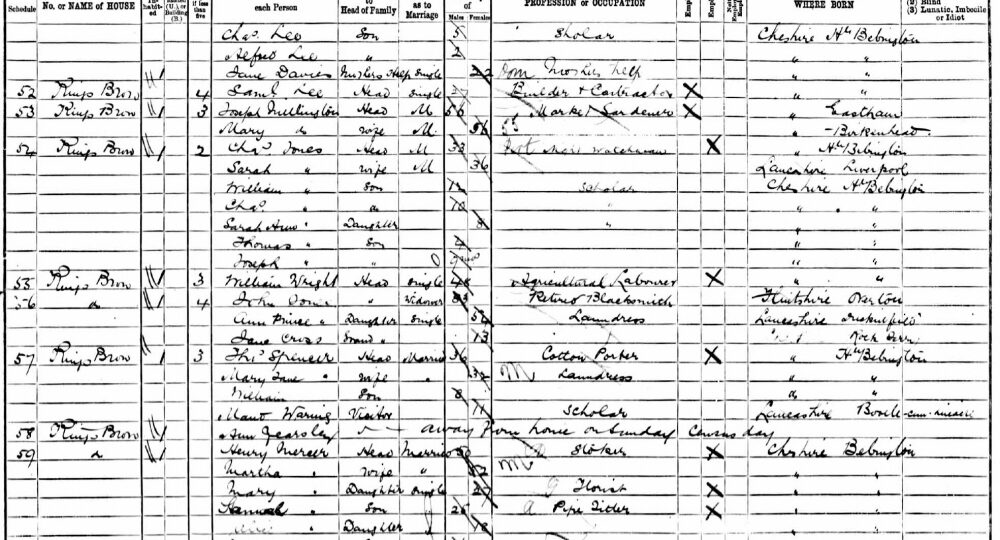 Schedule No. or NAME of HOUSE if less than five each Person Head of Family as to Marriage of Males Females PROFESSION or OCCUPATION WHERE BORN (2) Blind (3) Lunatic, Imbecile or Idiot
Chas. Lee Son 5 Scholar Cheshire Hr Bebington
Alfred Lee " 2 " "
Jane Davies Mothers Help Single 22 Dom Mothers help " "
52 Kings Brow 4 Saml. Lee Head Single Builder & Contractor X " "
53 Kings Brow 3 Joseph Millington Head M 56 Market Gardener X " Eastham
Mary do wife M 56 " Birkenhead
54 Kings Brow 2 Chas Jones Head M 33 Watchman X " Hr Bebington
Sarah " wife M 36 Lancashire Liverpool
William " Son 12 Scholar Cheshire Hr Bebington
Chas. " do 10 " " "
Sarah Ann " Daughter 8 " " "
Thomas " Son 4 " "
Joseph " " " "
55 Kings Brow 3 William Wright Head Single 48 Agricultural Labourer X " "
56 do 4 John " Widower 83 Retired Blacksmith Flintshire Overton
Ann Prince " Daughter Single 54 Laundress Lancashire
Jane Cross Grand " 13 Rock Ferry
57 Kings Brow 3 Thos Spencer Head Married 36 Cotton Porter X " Hr Bebington
Mary Jane " wife " 32 M Laundress " "
William Son 8 " "
Maud Waring Visitor 11 Scholar Lancashire Bootle-cum-
58 Kings Brow Ann Yearsley away from home on Sunday Census day
59 do Henry Mercer Head Married 50 Stoker X Cheshire Bebington
Martha " Wife " 52 M " "
Mary " Daughter Single 27 Florist X " "
Samuel " Son 26 Pipe Fitter X " "
" Daughter 18 " "